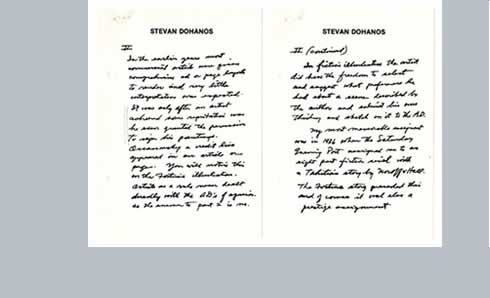 STEVAN DOHANOS
II
In the earlier years most
commercial artists were given
comprehensives ad or page layouts
to render and very little
interpretation was expected.
It was only after an artist
achieved some reputation was
he even granted the permission
to sign his paintings.
Occasionally a credit line
appeared on an article or
page. You will notice this
on the Fortune illustration.
Artists as a rule never dealt
directly with the AD's of agencies.
as the answer to part I is no.
STEVAN DOHANOS
II (continued)
In fiction illustration the artist
did have the freedom to select
and suggest what preference he
had about a scene described by
the author and submit his own
thinking and sketch on it to the A.D.
My most memorable assignment
was in 1936 when the Saturday
Evening Post assigned me to an
eight part fiction serial with
a Tahitian story by Nordoff & Hall.
The Fortune story preceded this
and of course it was also a
prestige assignment